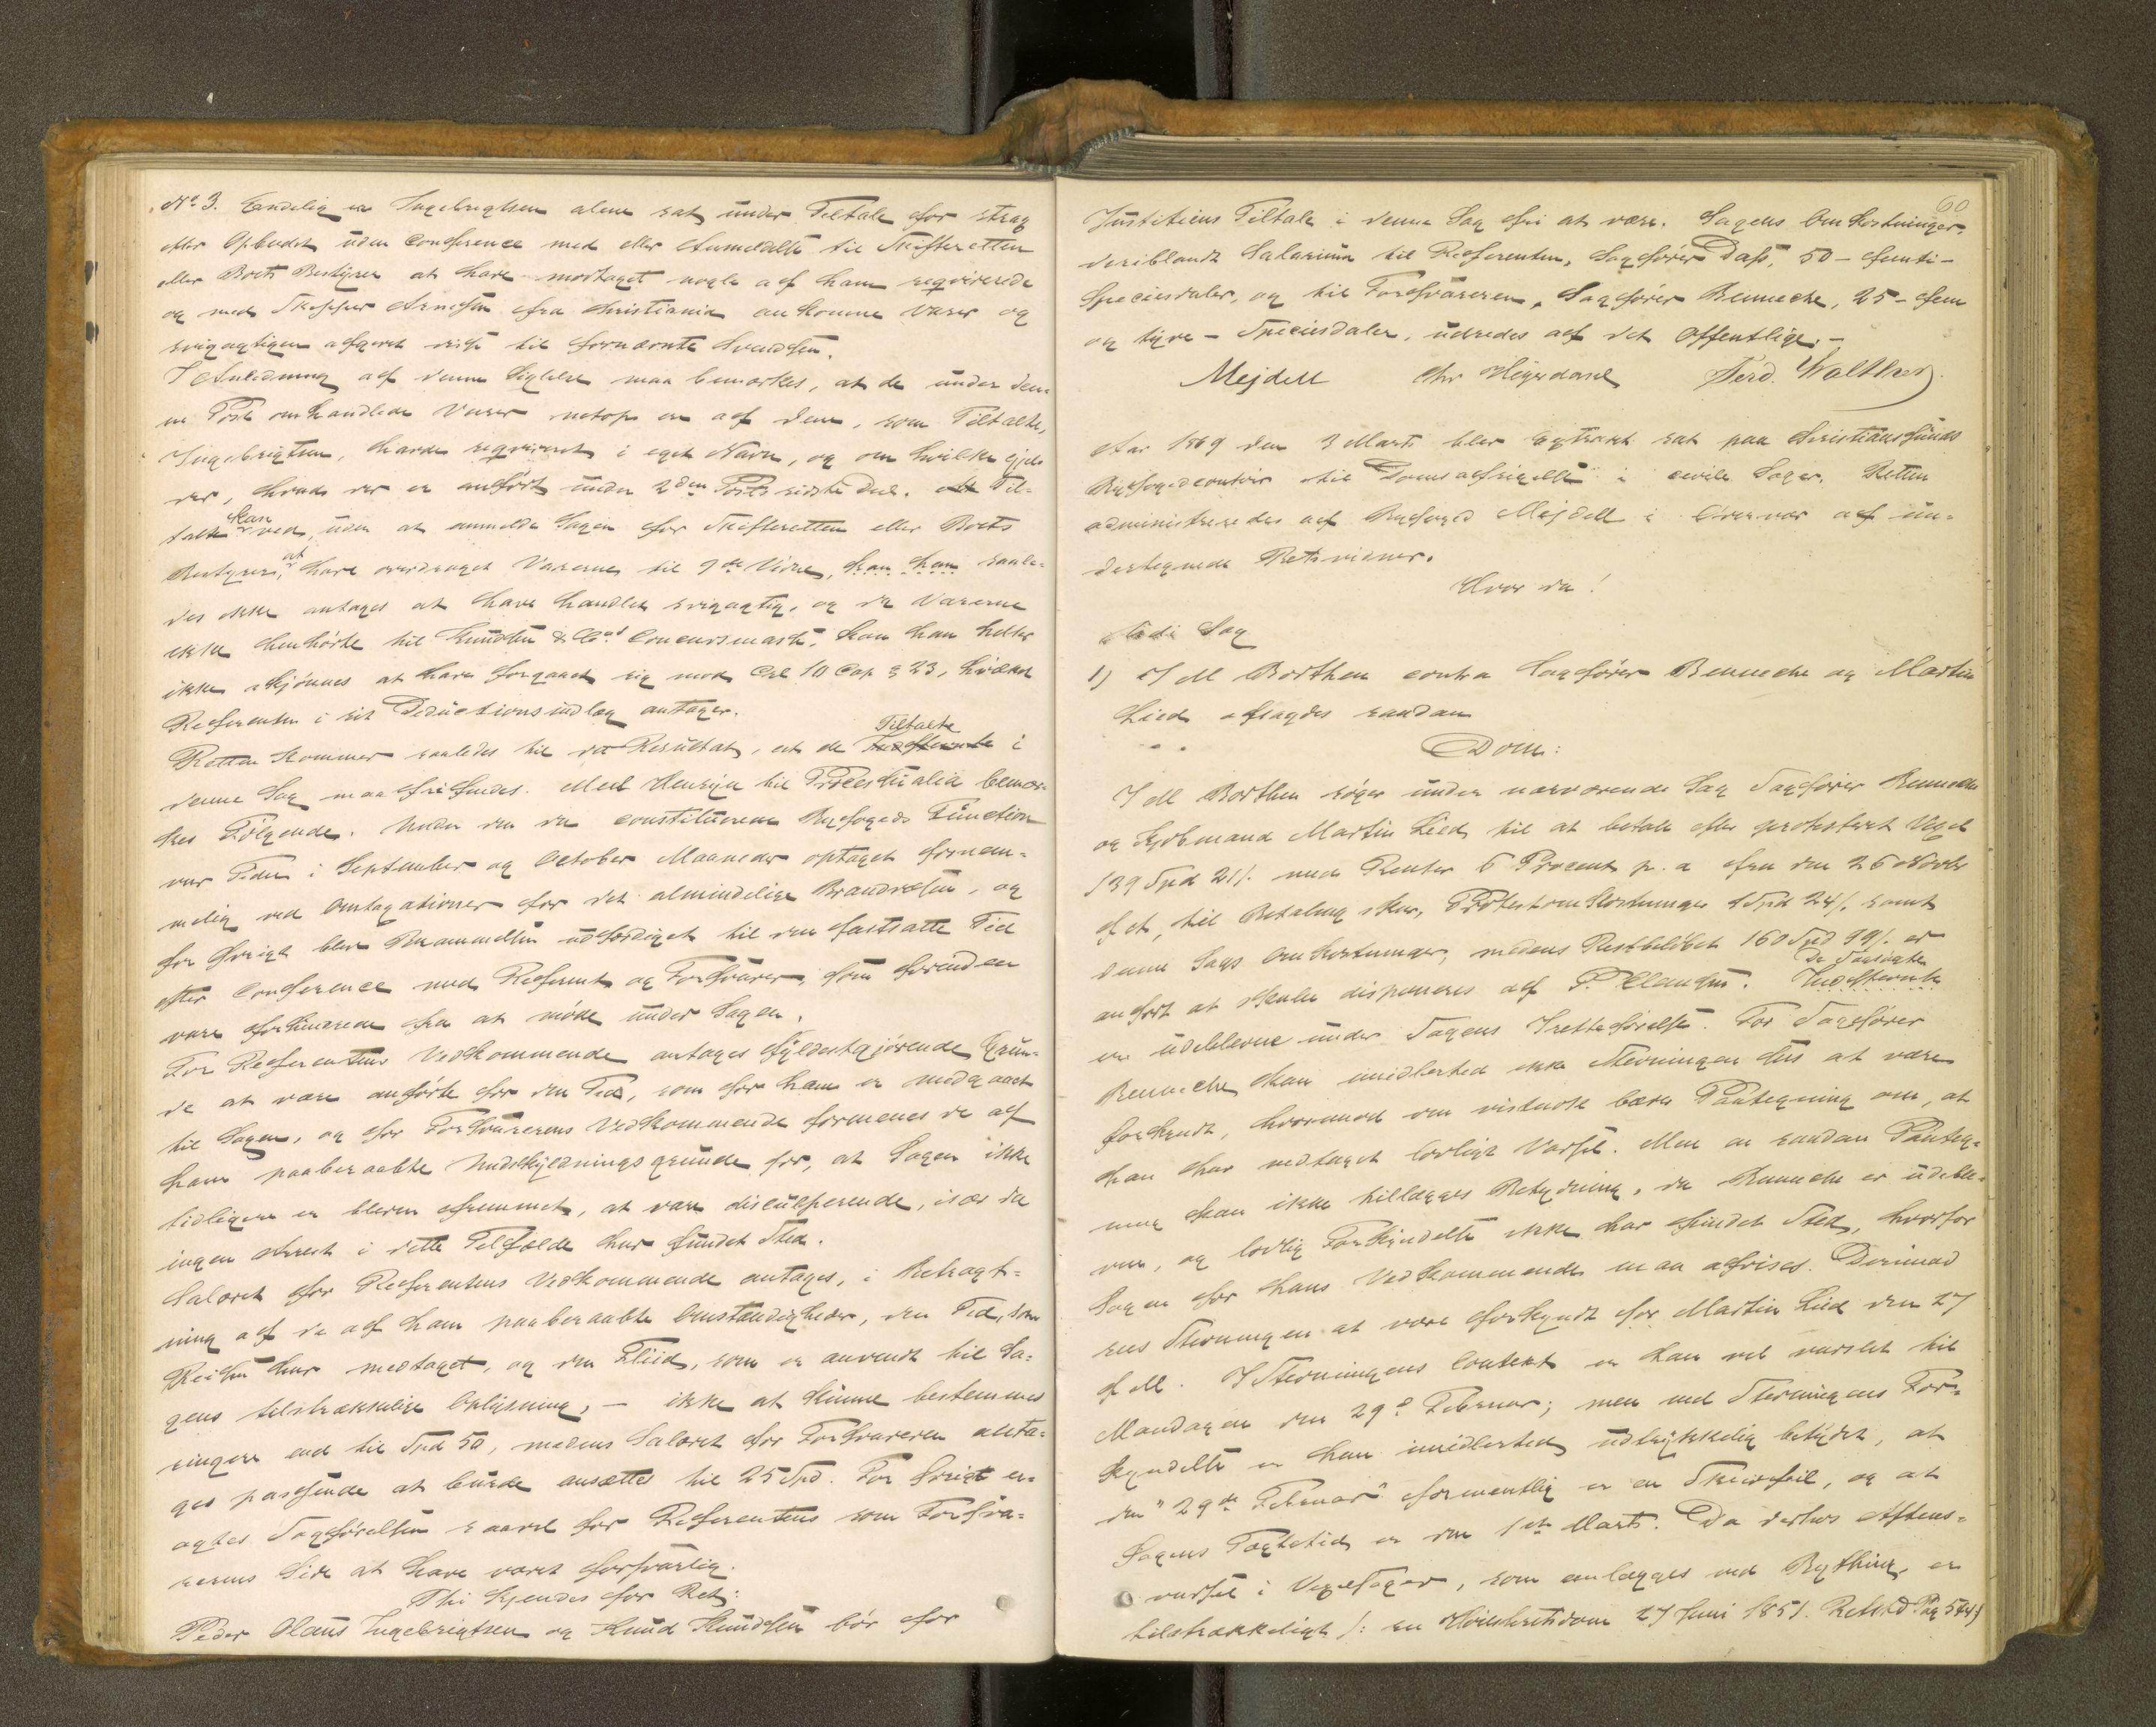 No 3. Endelig er Ingebrigtsen alene sat under Tiltale for strax
efter Opbudet uden Conference med eller Anmeldelse til Skifteretten
eller Boets Bestyrer at have modtaget nogle af ham reqvirerede
og med Skipper Arnesen fra Christiania ankomne Varer og
svigagtigen afgivet disse til fornævnte Svendsen.
I Anledning af denne Sigtelse maa bemærkes, at de under den-
ne Post omhandlede Varer netop er af dem, som Tiltalte,
Ingebrigtsen, havde reqvireret i eget Navn, og om hvilke gjæl-
der, hvad der er anført under 2den Posts sidste Deel. Til-
talte kan ved, uden at anmelde Sagen for Skifteretten eller Boets
Bestyrer, at have overdraget Varerne til 7de Vidne, saale-
des ikke antages at have handlet svigagtig, og da Varerne
ikke henhørte til Knudsen & Cos Concursmasse, kan han heller
ikke skjønnes at have forgaaet sig mod Crl 10 Cap § 23, hvilket
Referenten i sit Deductionsindlæg antager.
Retten kommer saaledes til det Resultat, at de Tiltalte i
denne Sag maa frifindes. Med Hensyn til Processualia bemær-
kes Følgende. Under den da constituerede Byfogeds Function
var Tiden i September og October Maaneder optaget fornem-
melig ved Omtaxationer for det almindelige Brandvæsen, og
for Øvrigt blev Berammelsen udfærdiget til den fastsatte Tid
efter Conference med Referent og Forsvarer, som forinden
vare forhindrede fra at møde under Sagen.
For Referentens Vedkommende antages fyldestgjørende Grun-
de at være anførte for den Tid, som for ham er medgaaet
til Sagen, og for Forsvarerens Vedkommende formenes de af
ham paaberaabte Undskyldningsgrunde for, at Sagen ikke
tidligere er bleven fremmet, at være disculperende, især da
ingen Arrest i dette Tilfælde har fundet Sted.
Salæret for Referentens Vedkommende antages, i Betragt-
ning af de af ham paaberaabte Omstændigheder, den Tid, som
Reisen har medtaget, og den Fliid, som er anvendt til Sa-
gens tilstrækkelige Oplysning, – ikke at kunne bestemmes
ringere end til Spd 50, medens Salæret for Forsvareren anta-
ges passende at burde ansættes til 25 Spd. For Øvrigt er-
agtes Sagførelsen saavel for Referentens som Forsva-
rerens Side at have været forsvarlig.
Thi kjendes for Ret:
Peder Claus Ingebrigtsen og Knud Knudsen bør for
60
Justitiens Tiltale i denne Sag fri at være. Sagens Omkostninger,
deriblandt Salarium til Referenten, Sagfører Dass, 50 – femti –
Speciesdaler, og til Forsvareren, Sagfører Benneche, 25 – fem
og tyve – Speciesdaler, udredes af det Offentlige. –
Mejdell Chr Hegerdahl Ferd. Walther.
Aar 1869 den 3 Marts blev Extraret sat paa Christianssunds
Byfogedcontoir til Domsafsigelse i civile Sager. Retten
administreredes af Byfoged Mejdell i Overvær af un-
dertegnede Retsvidner.
Hvor da!
Sag
1) I M Borthen contra Sagfører Bennecke og Martin
Lied afsagdes saadan
Dom:
I M Borthen søger under nærværende Sag Sagfører Bennecke
og Kjøbmand Martin Lied til at betale efter protesteret Vexel
139 Spd 21/. med Renter 6 Procent p. a fra den 26 Novbr
f A, til Betaling sker, Protestomkostninger 1 Spd 24/. samt
denne Sags Omkostninger, medens Restbeløbet 160 Spd 99/. er
anført at skulle disponeres af P. Clausen. De Saggivne
ere udeblevne under Sagens Iretteførelse. For Sagfører
Bennecke skan imidlertid ikke Stevningen sees at være
forkyndt, hvorimod den vistnok bærer Paategning om, at
han har vedtaget lovligt Varsel. Men en saadan Paateg-
ning kan ikke tillægges Betydning, da Bennecke er udeble-
ven, og lovlig Forkyndelse ikke har fundet Sted, hvorfor
Sagen for hans Vedkommende maa afvises. Derimod
sees Stevningen at være forkyndt for Martin Lied den 27
f M. I Stevningens Context er han vel varslet til
Mandagen den 29de Februar; men ved Stevningens For-
kyndelse er han imidlertid udtrykkelig betydet, at
den "29de Februar" formentlig er en Skrivfeil, og at
Sagens Tægtetid er den 1ste Marts. Da derhos Aftens-
varsel i Vexelsager, som anlægges ved Bything, er
tilstrækkeligt /: en Høiesteretsdom 27 Juni 1851. Retstid. Pag 574)